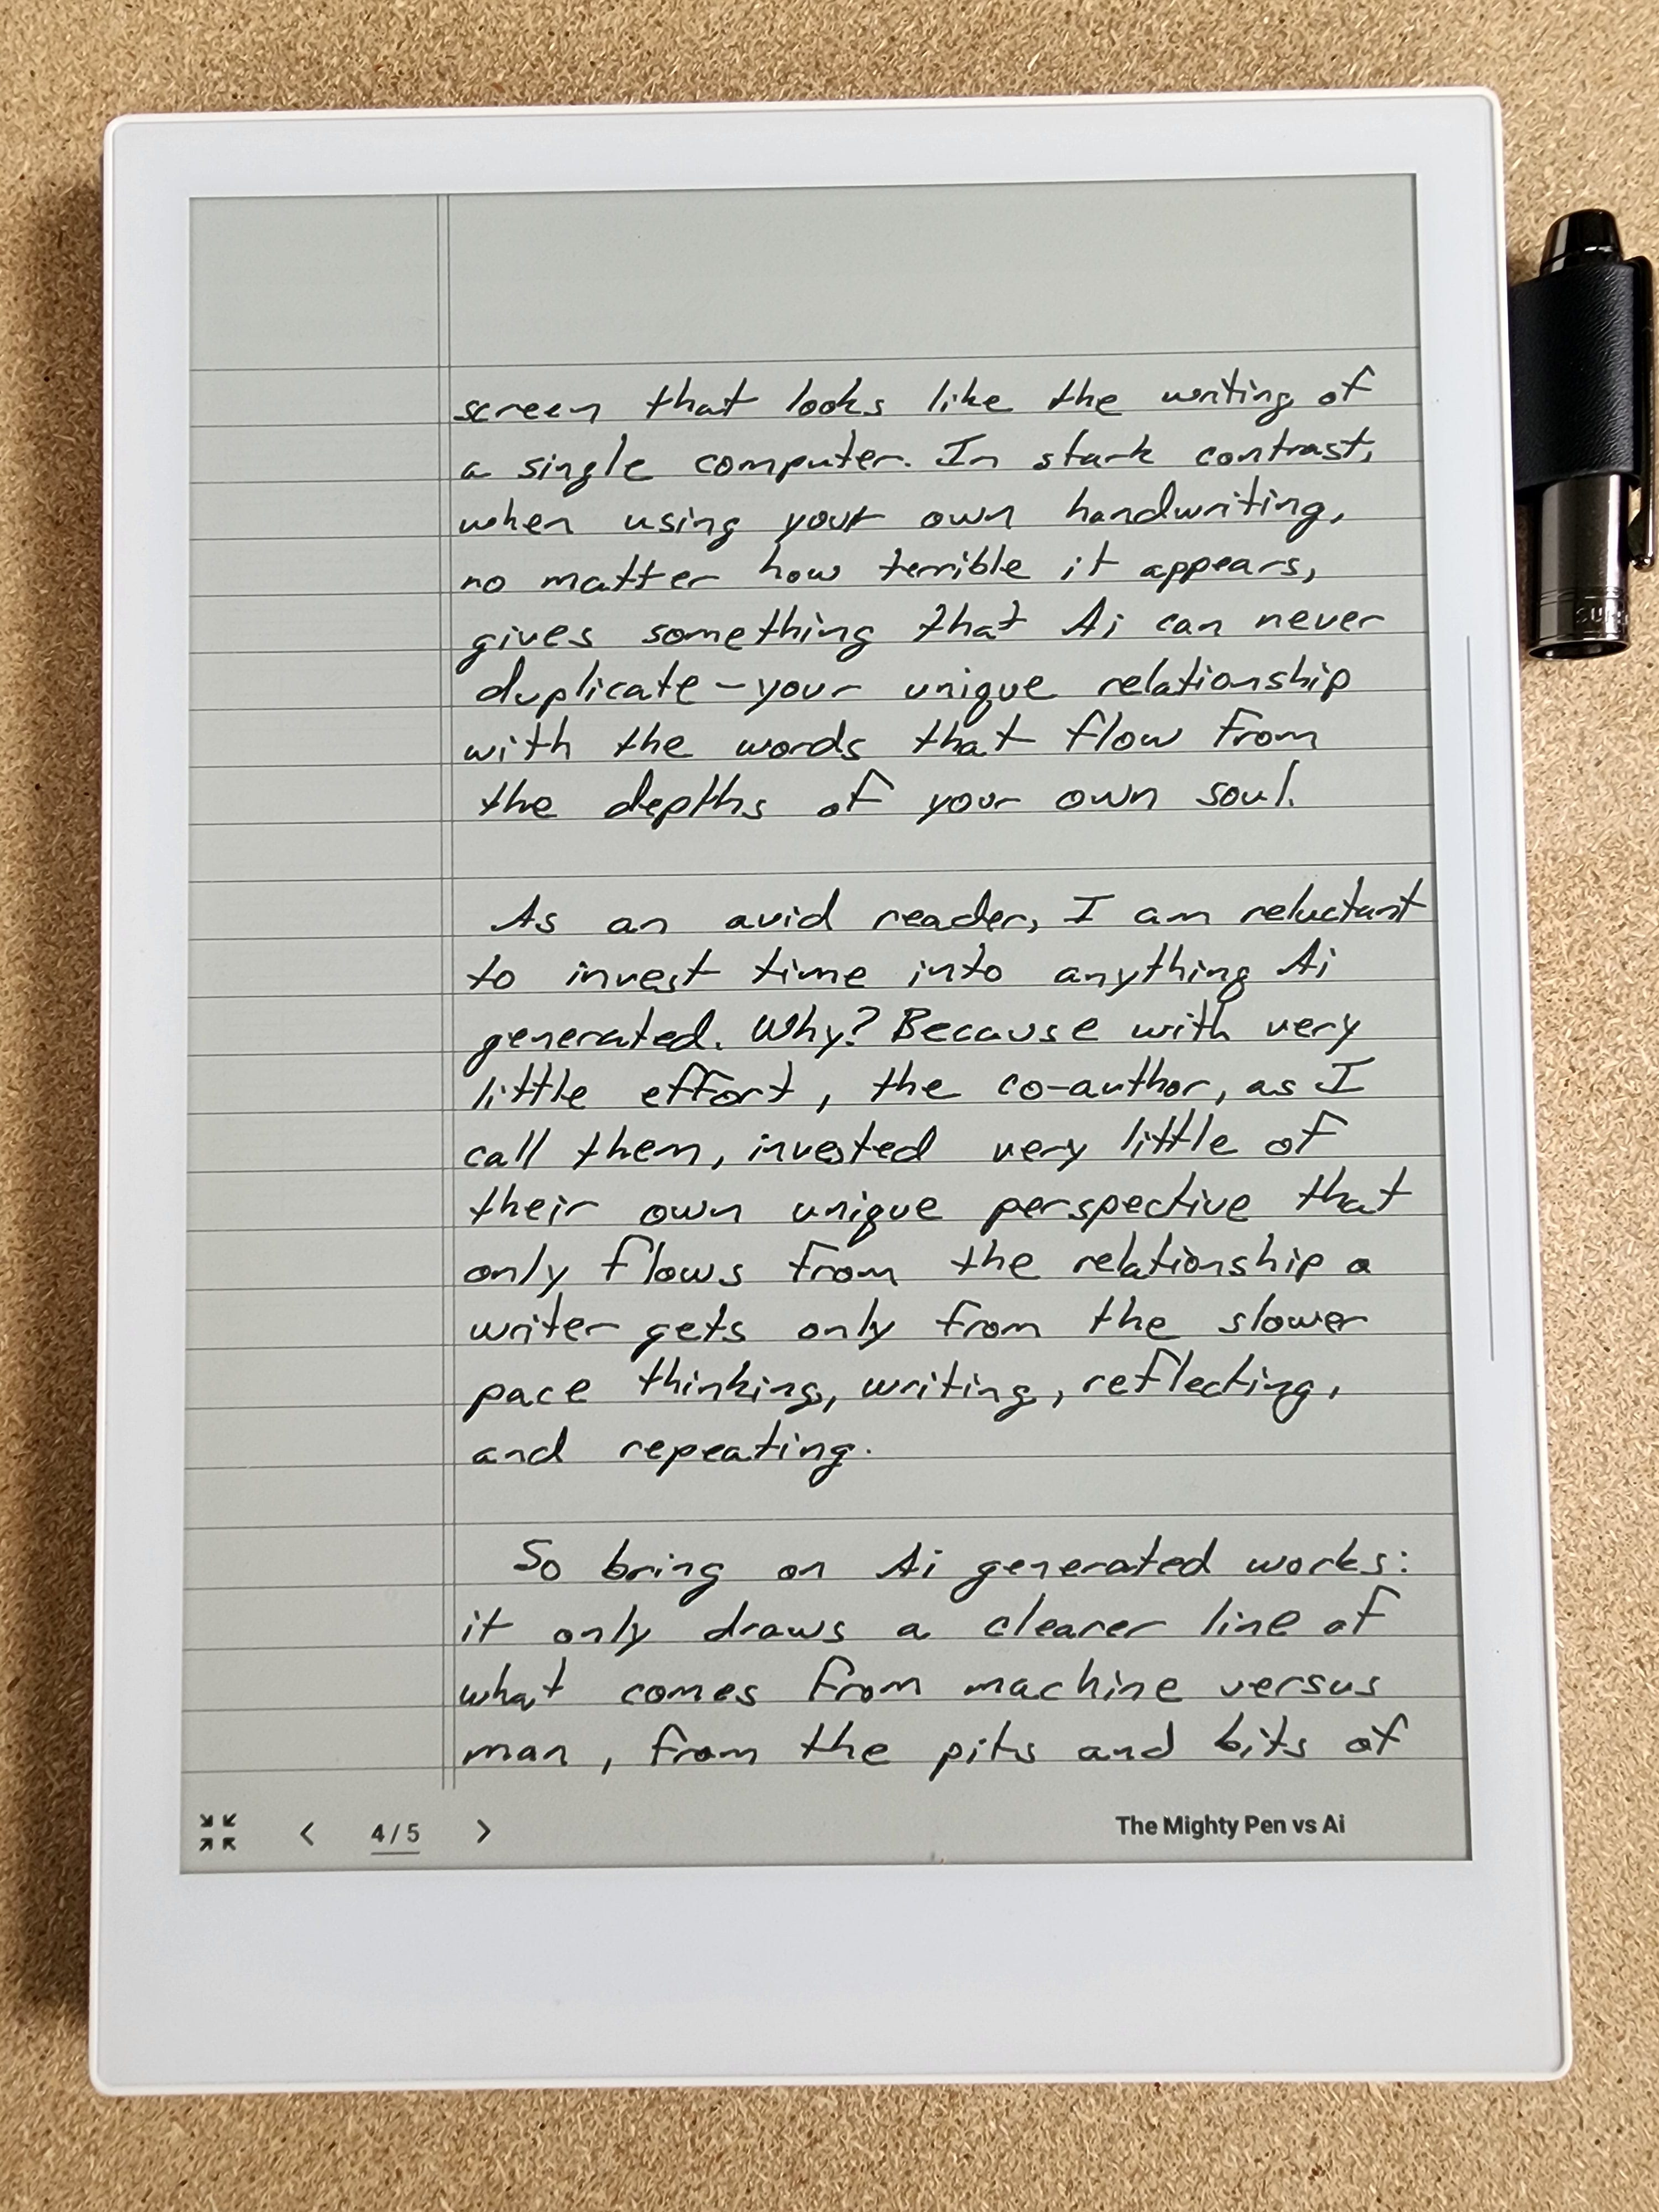 screen that looks like the writing of
a single computer. In stark contrast,
when using your own handwriting,
no matter how terrible it appears,
gives something that Ai can never
duplicate—your unique relationship
with the words that flow from
the depths of your own soul.
As an avid reader, I am reluctant
to invest time into anything Ai
generated. Why? Because with very
little effort, the co-author, as I
call them, invested very little of
their own unique perspective that
only flows from the relationship a
writer gets only from the slower
pace thinking, writing, reflecting,
and repeating.
So bring on Ai generated works:
it only draws a clearer line of
what comes from machine versus
man, from the pits and bits of
4/5
The Mighty Pen vs Ai